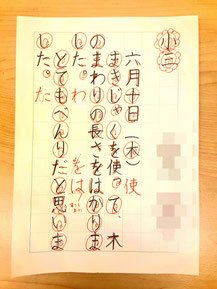 小三
六月十日(木)使
まきじゃくを使って、木
のまわりの長さをはかりま
した。わ をは
とてもべんりだと思いま
した。た